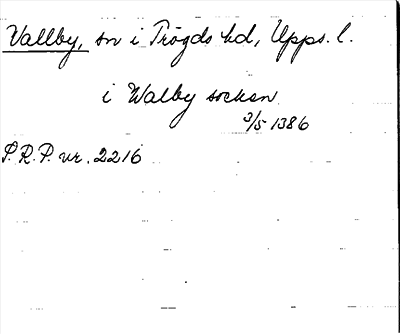 Vallby, sn i Trögds hd, Upps. l.
i Walby socken
3/5 1386
S.R.P. nr. 2216